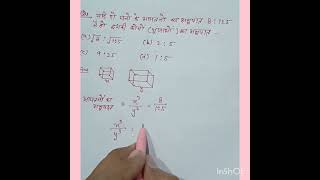 यदि दो घनों के आयतनों का अनुपात 8 : 125
है तो उनकी कोरों (भुजाओं) का अनुपात -
(a) √8 : √125 (b) 2 : 5
(c) 4 : 25 (d) 1 : 5
x
y
आयतनों का
अनुपात = x³/y³ = 8/125
x³/y³ :
InShot